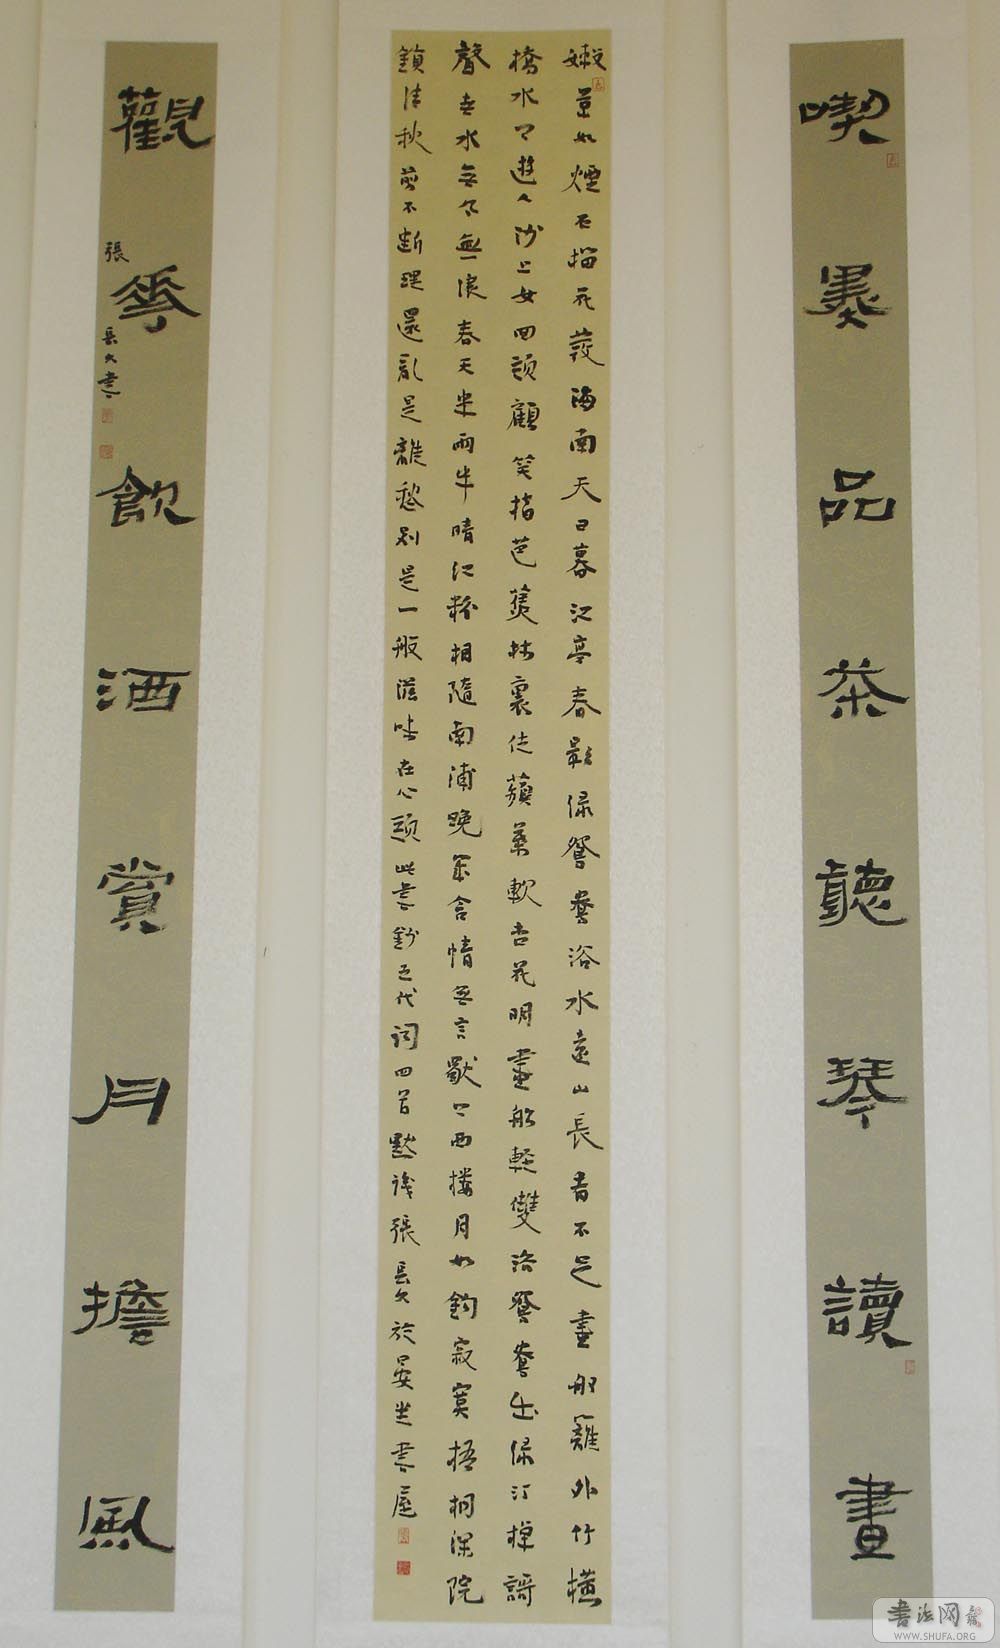 喫墨品茶聽琴讀畫
嫩草如煙石榴花發海南天日暮江亭春影綠鴛鴦浴水遠山長看不足畫舸籬外竹橫
橋水上遊人沙上女回頭顧笑指芭蕉林裏住蘋葉軟杏花明畫船輕雙浴鴛鴦出綠汀棹謌
聲春水無風無浪春天半雨半晴紅粉相隨南浦晚幾含情無言獸上西樓月如鉤寂寞梧桐深院
鎖清秋剪不斷理還亂是離愁別是一般滋味在心頭此書鈔五代詞四首默識張 於晏坐書屋
觀華飲酒賞月擔風
張 書
書法网
WWW.SHUFA.ORG